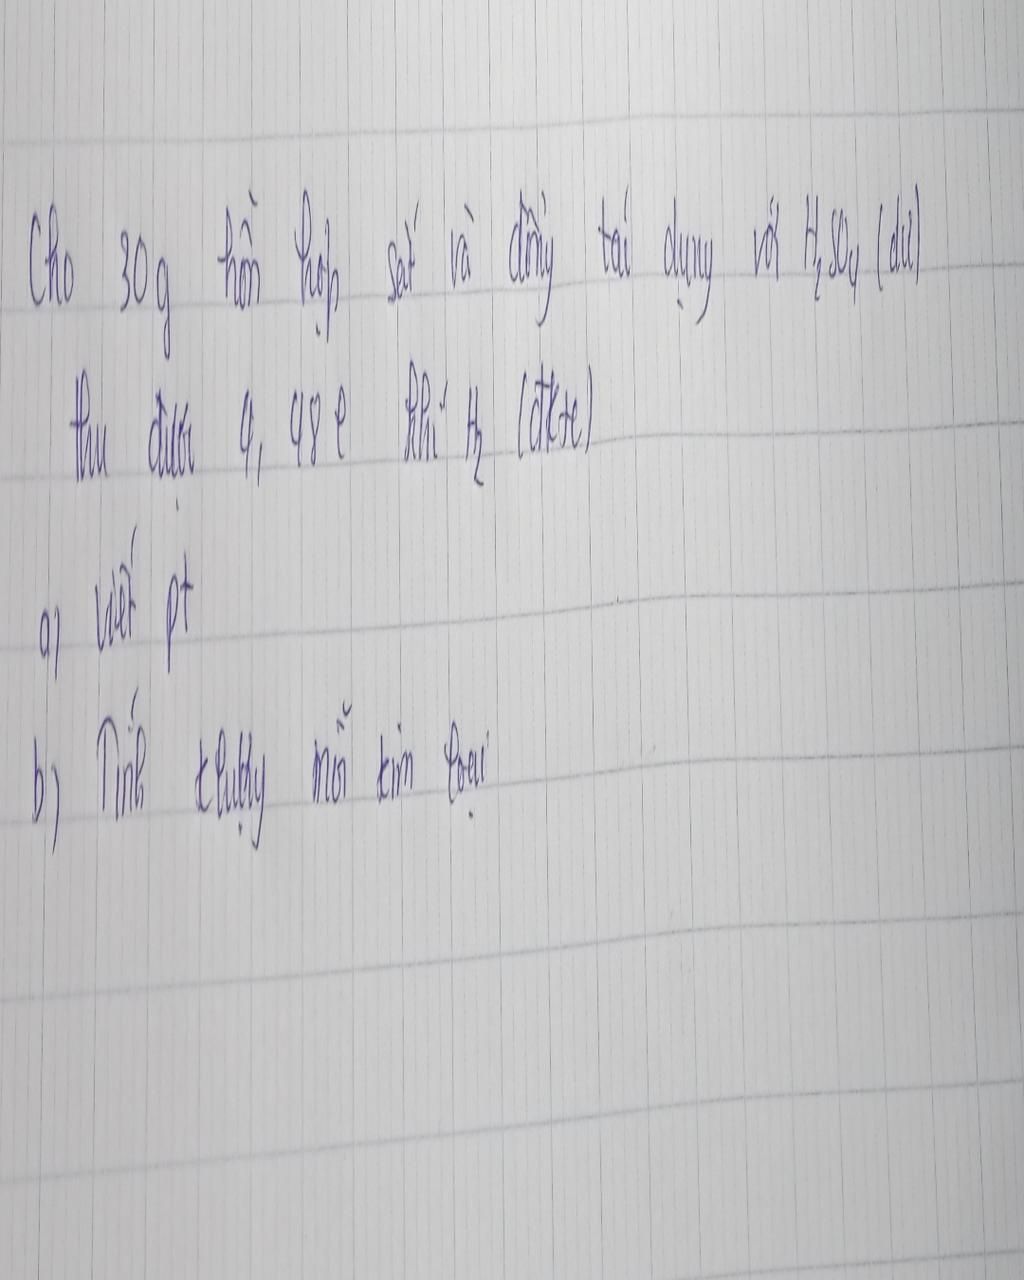 Cho 30g hỗn hợp sắt và đồng tác dụng với H₂SO₄ (dư)
thu được 4,48l khí H₂ (đktc)
a) viết pt
b) Tính klượng mỗi kim loại